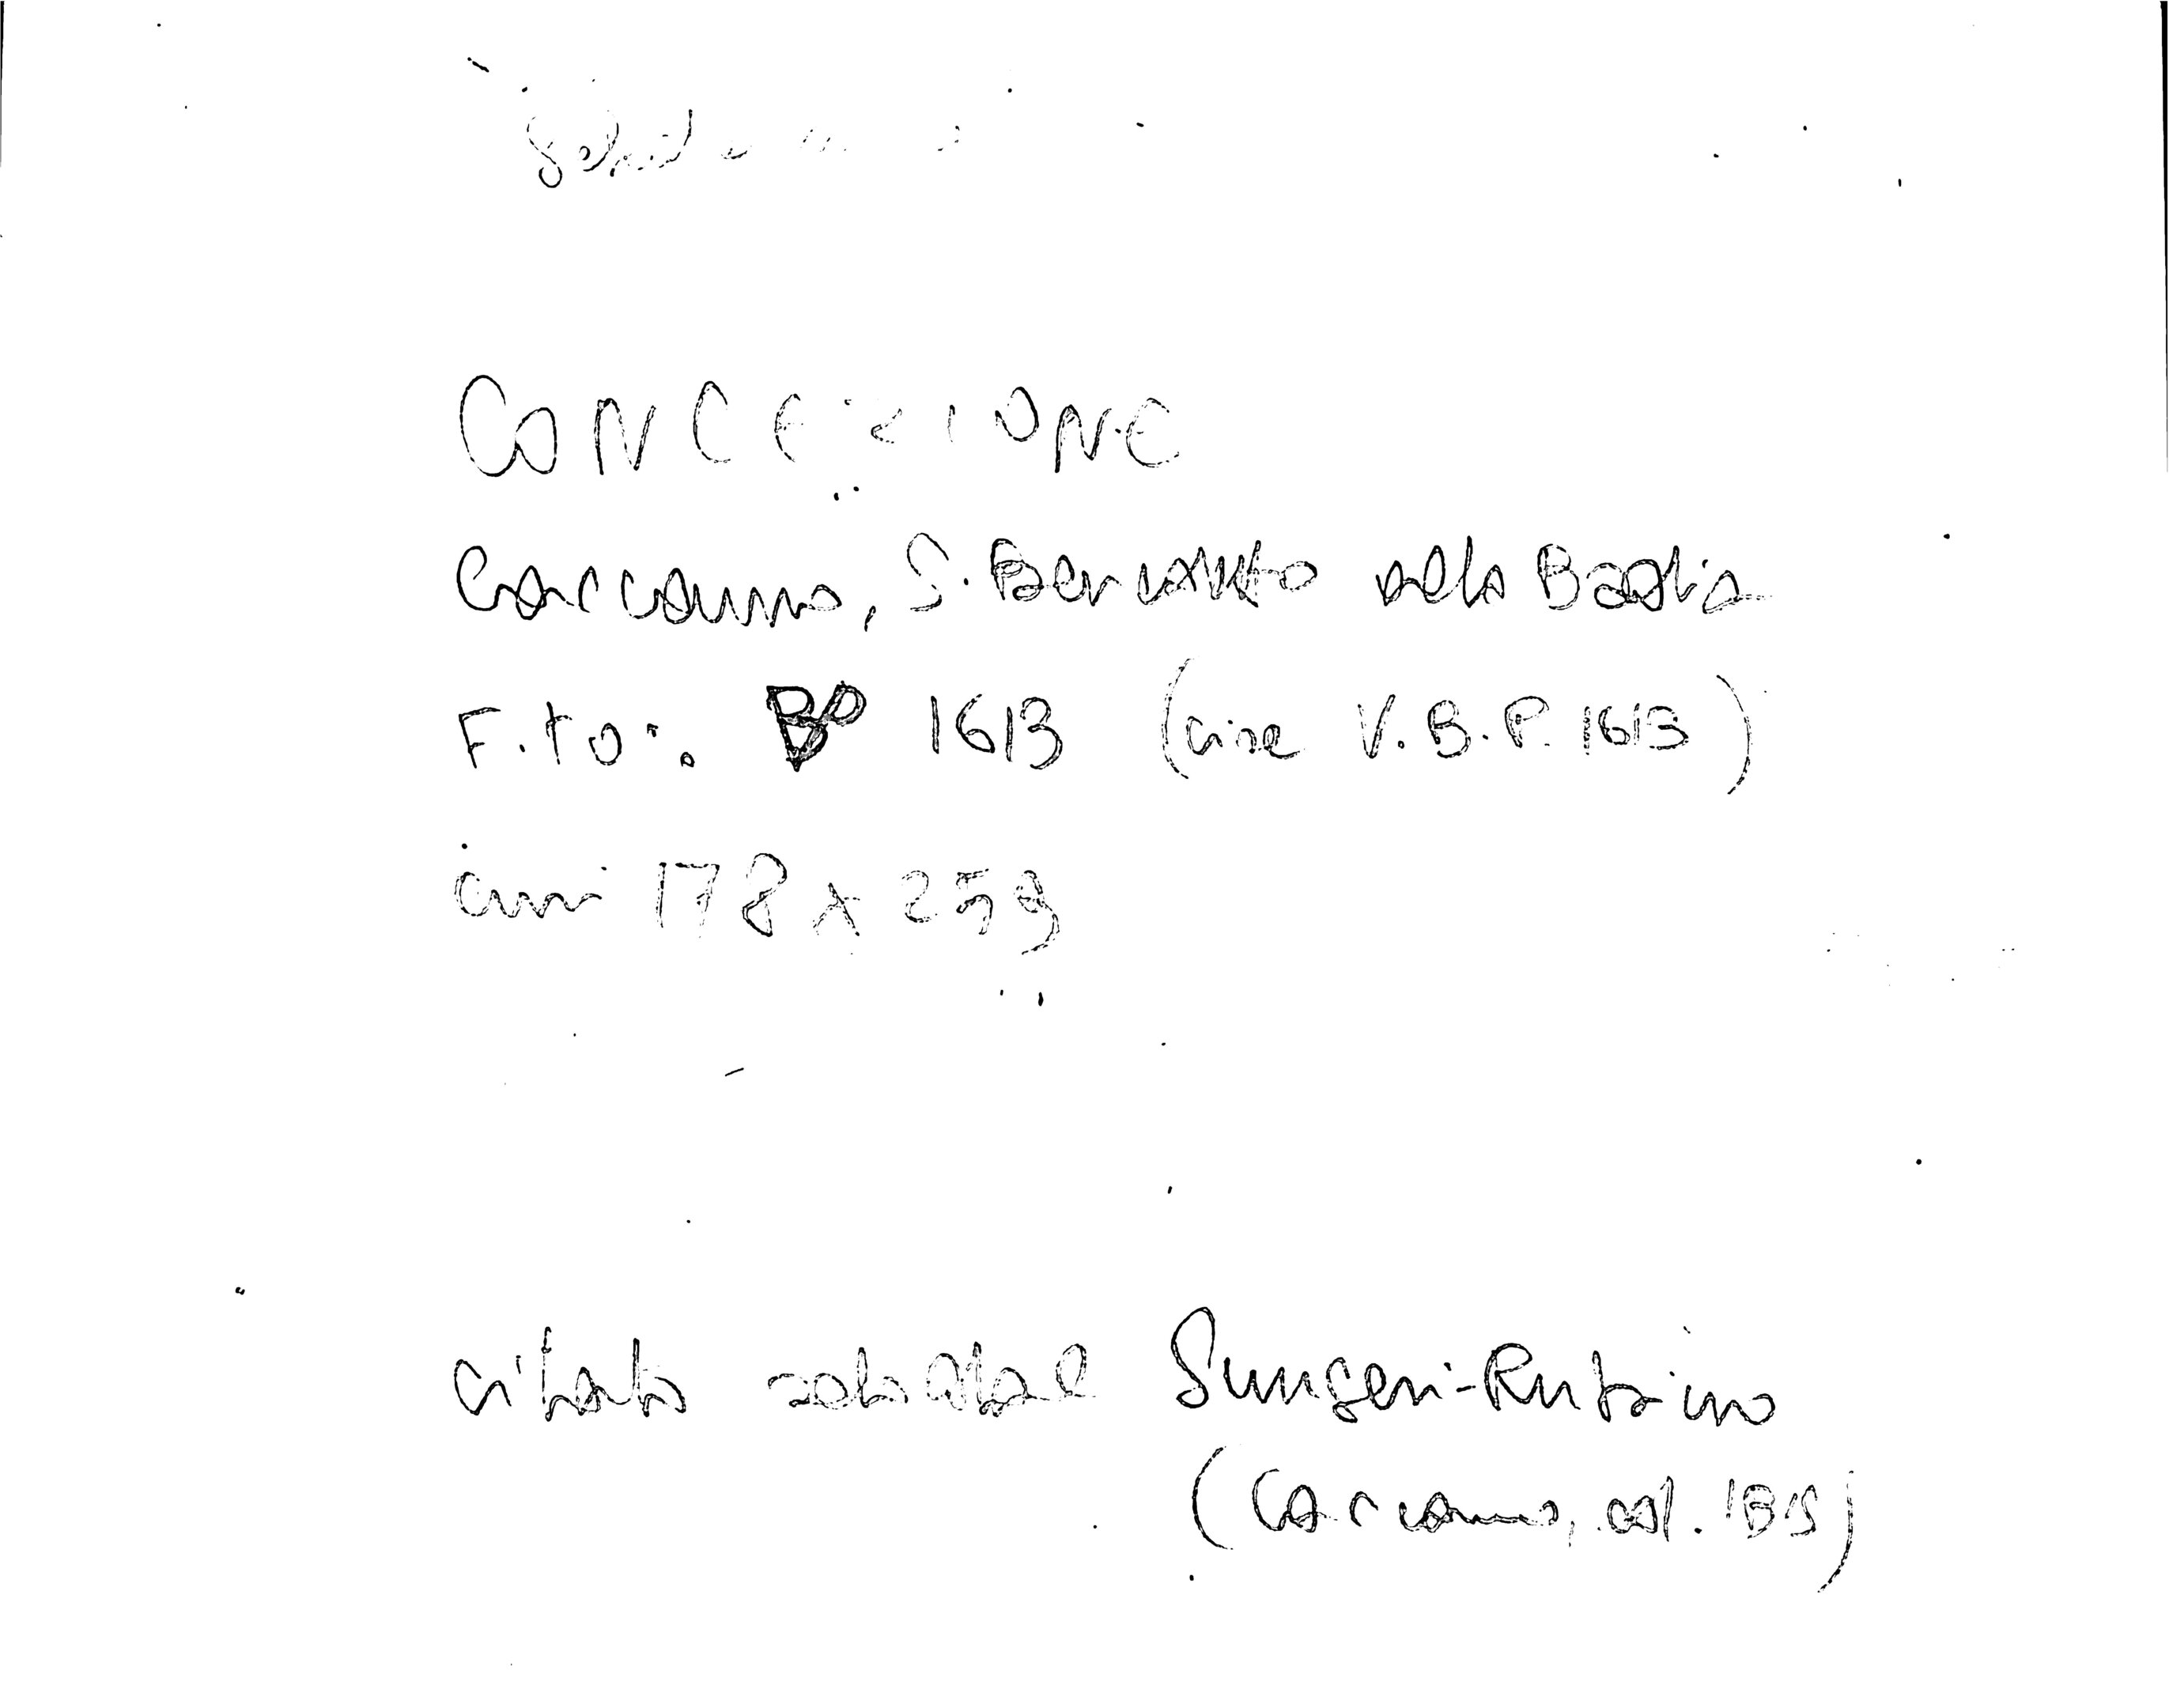 CONCEZIONE
Caccamo, S. Benedetto alla Badia
F.to: 1613 (cioè V.B.P. 1613)
cm 178 x 259
citato Sunseri-Rubino
(Caccamo, cat.